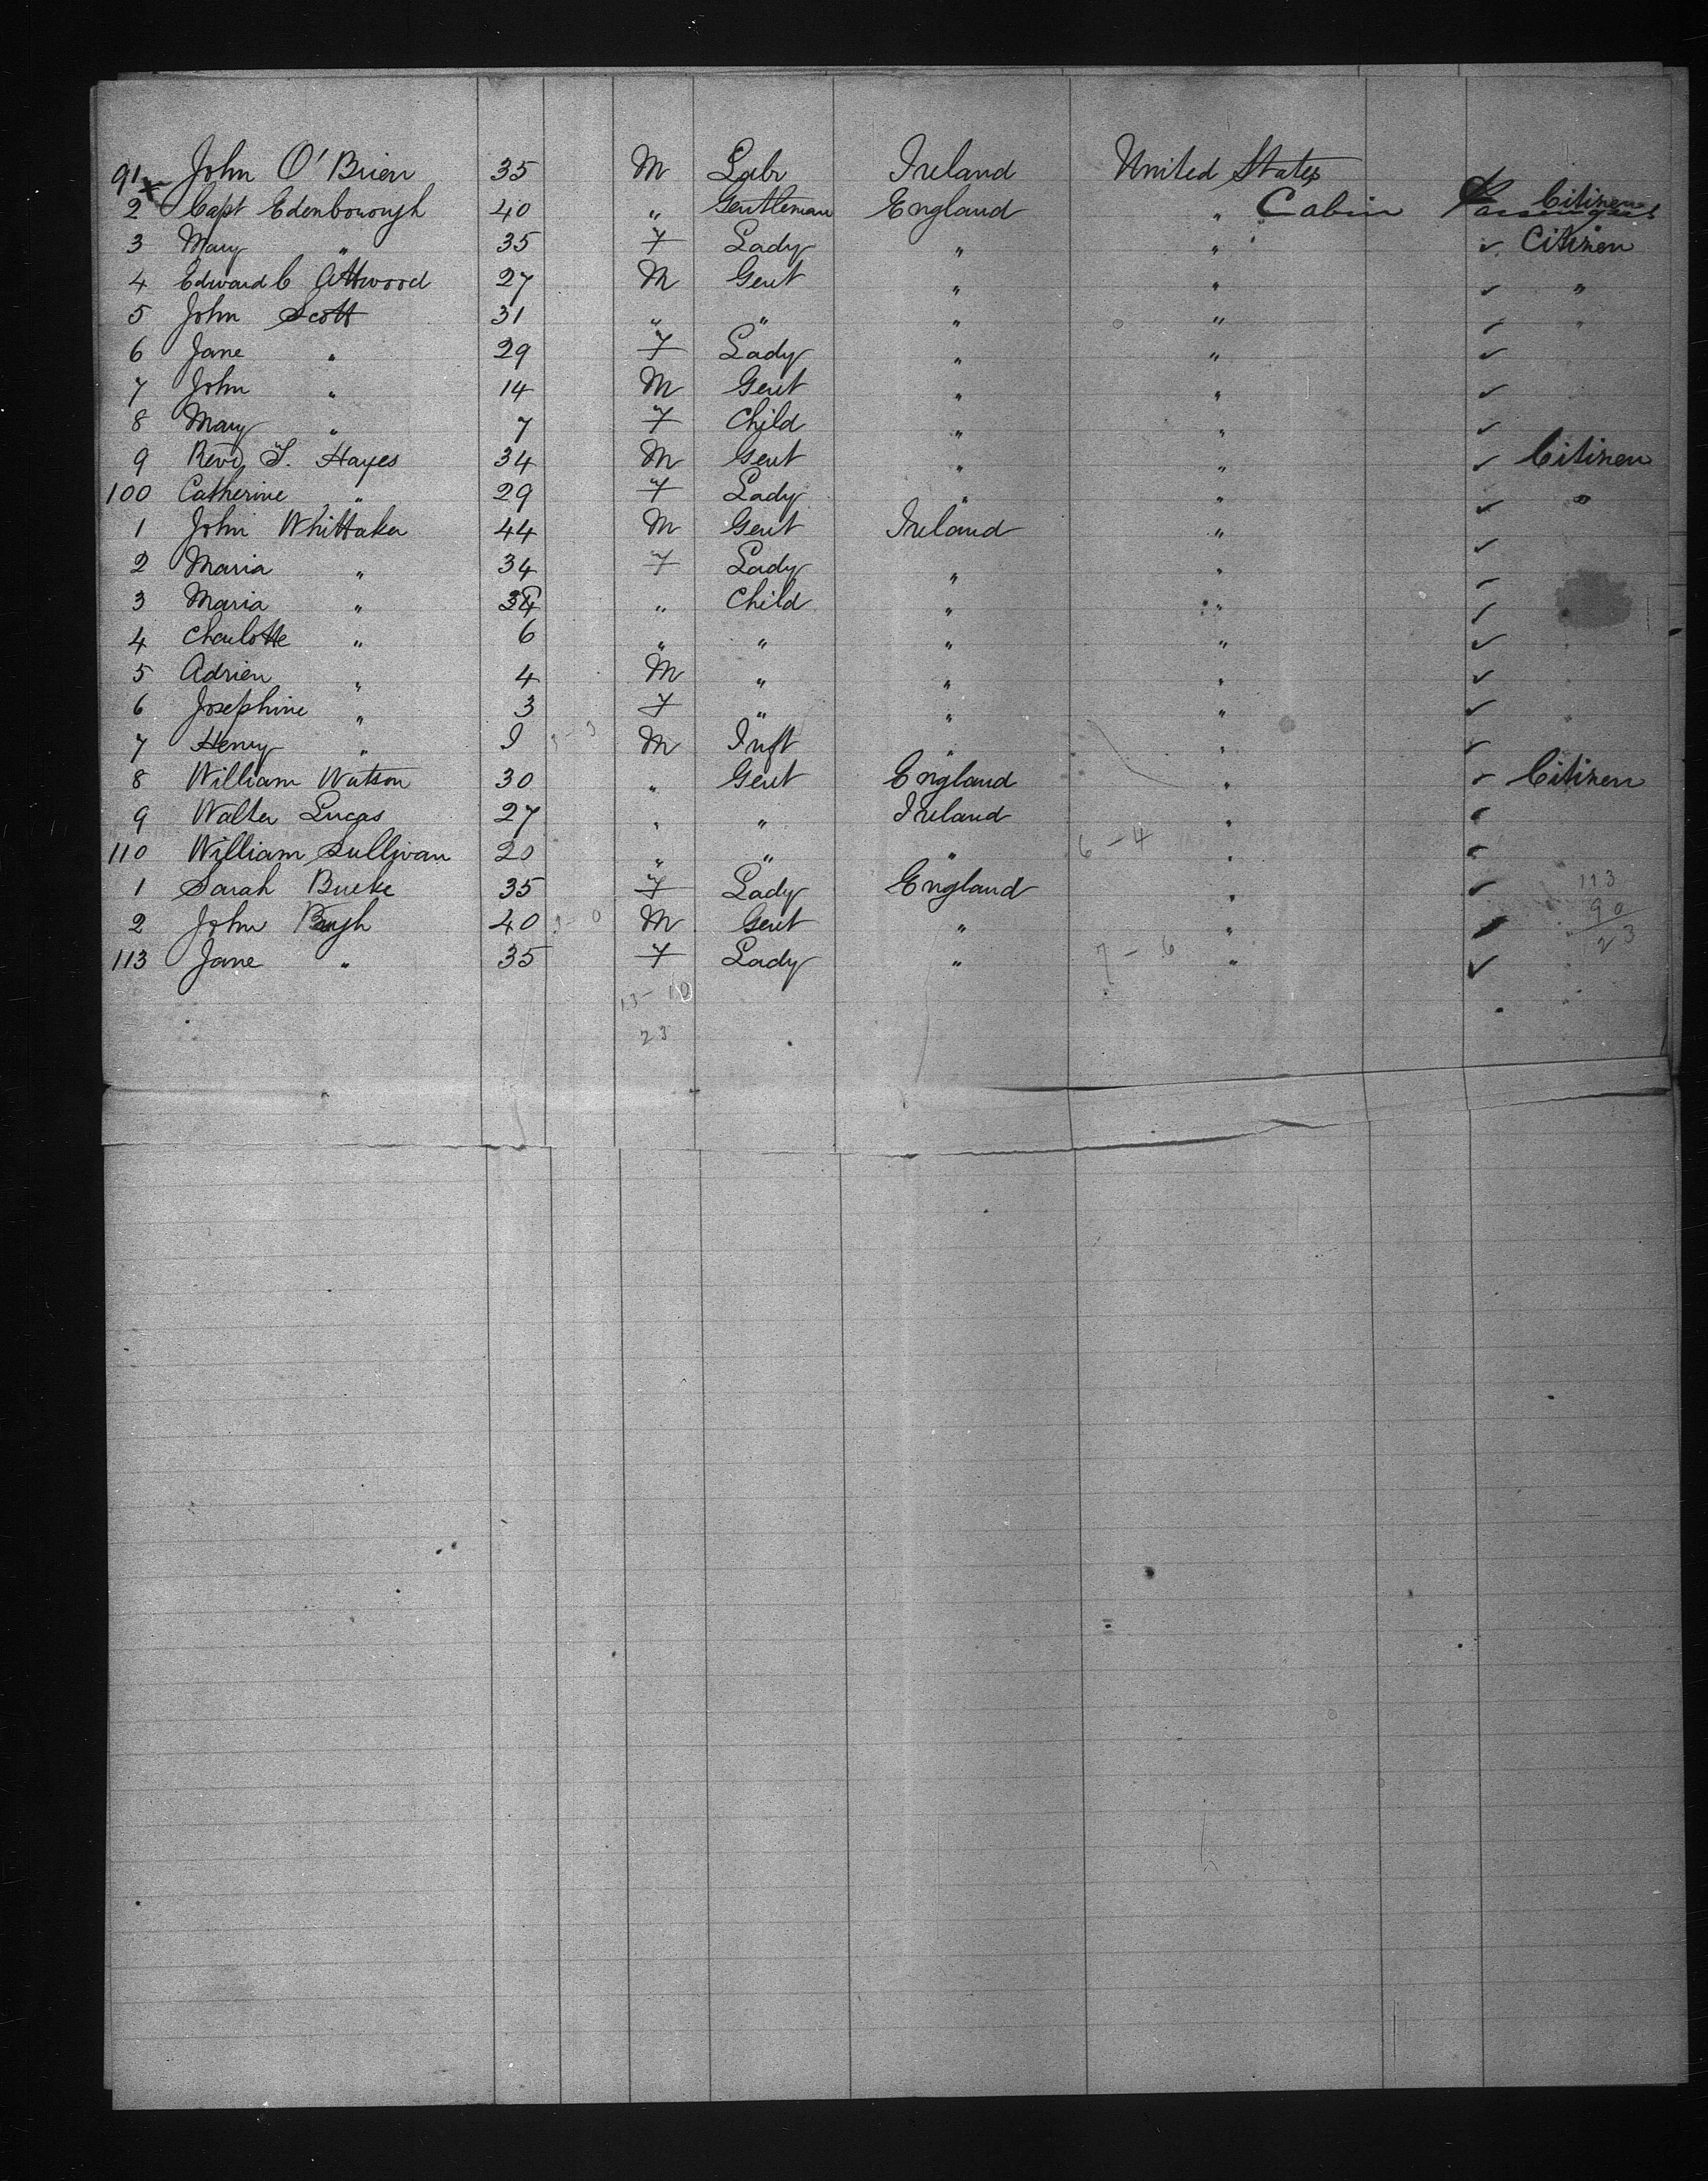 91 John O'Brien 35 M Labr Ireland United States
2 Capt Edenborough 40 " Gentleman England " Cabin Passengers Citizen
3 Mary " 35 F Lady " " ✓ Citizen
4 Edward C Attwood 27 M Gent " " ✓ "
5 John Scott 31 " " " " ✓ "
6 Jane " 29 F Lady " " ✓
7 John " 14 M Gent " " ✓
8 Mary " 7 F Child " " ✓
9 Revd T. Hayes 34 M Gent " " ✓ Citizen
100 Catherine " 29 F Lady " " ✓ "
1 John Whittaker 44 M Gent Ireland " ✓
2 Maria " 34 F Lady " " ✓
3 Maria " " Child " " ✓
4 Charlotte " 6 " " " " ✓
5 Adrien " 4 M " " " ✓
6 Josephine " 3 F " " " ✓
7 Henry " M Inft " " ✓
8 William Watson 30 " Gent England " ✓ Citizen
9 Walter Lucas 27 " " Ireland " ✓
110 William Sullivan 20 " " " 6-4 " ✓
1 Sarah Burke 35 F Lady England " ✓ 113
2 John Bugh 40 M Gent " " ✓ 90
113 Jane " 35 F Lady " 7-6 " ✓ 23
13-10
23